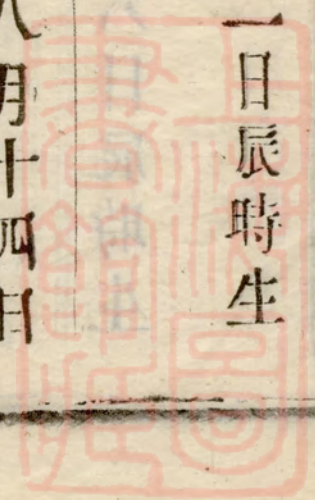 一日辰時生
八月十四日